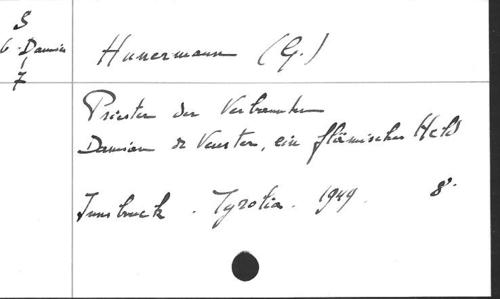 S
6 - Damien
7
Hunermann (G.)
Priester der Verbannten
Damian de Veuster, ein flämischer Held
Innsbruck . Tyrolia . 1949 . 8°.